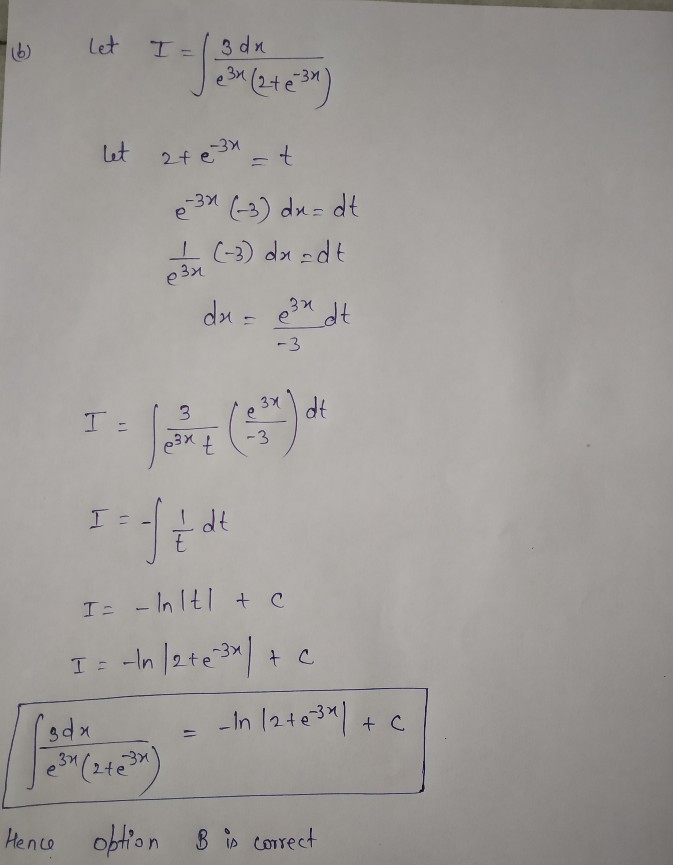 (b) Let I = ∫ 3 dx / e^3x (2+e^-3x)
Let 2+e^-3x = t
e^-3x (-3) dx = dt
1/e^3x (-3) dx = dt
dx = e^3x/-3 dt
I = ∫ 3/e^3x t (e^3x/-3) dt
I = -∫ 1/t dt
I = -ln|t| + c
I = -ln|2+e^-3x| + c
∫ 3dx / e^3x (2+e^-3x) = -ln|2+e^-3x| + c
Hence option B is correct